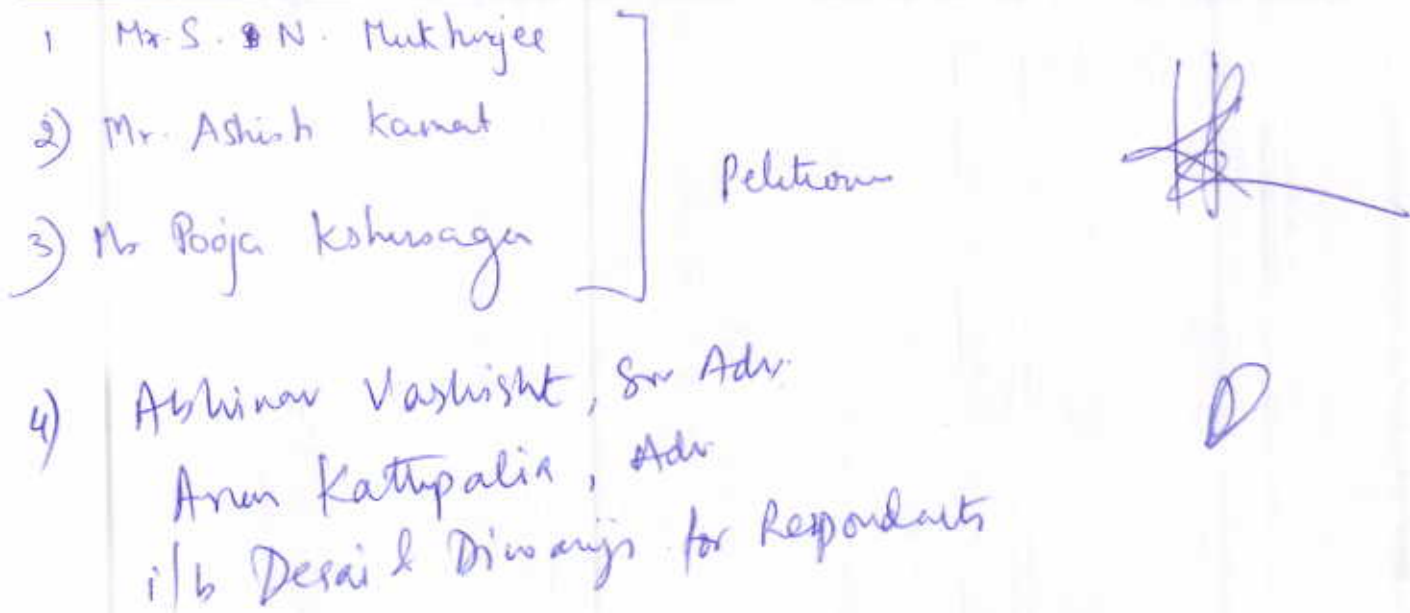 1 Mr. S. N. Mukherjee
2) Mr. Ashish Kamat
3) Ms Pooja Kshirsagar
Petitioner
4) Abhinav Vashisht, Sr Adv.
Arun Kathpalia, Adv
i/b Desai & Diwanji for Respondents